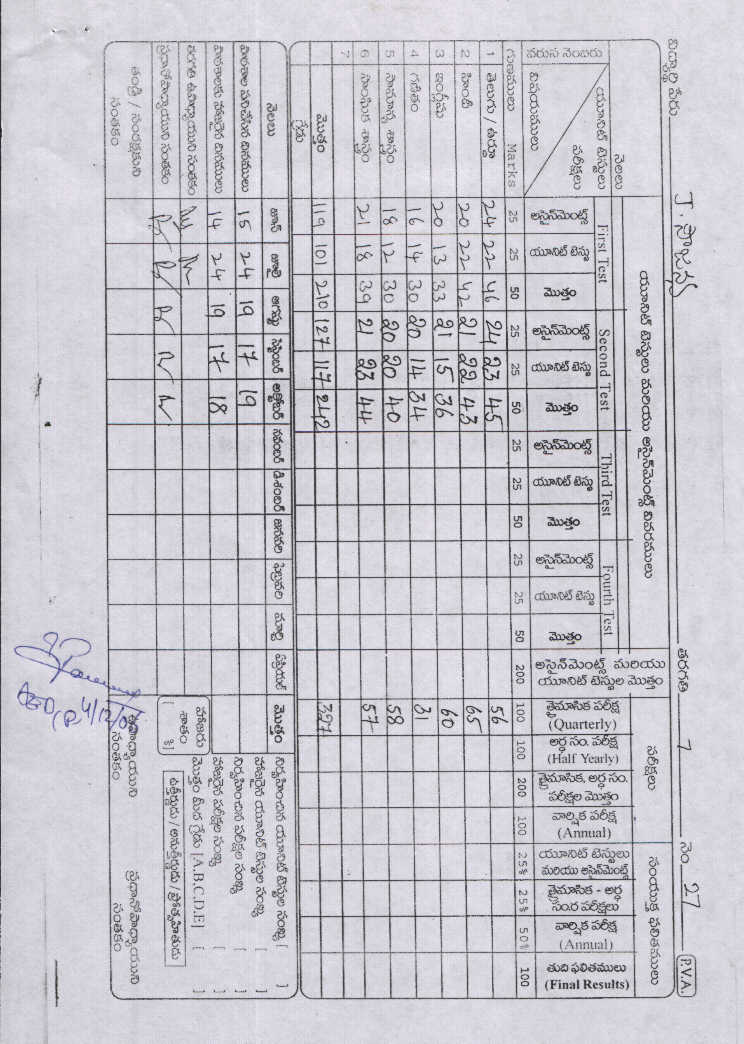 విద్యార్థి పేరు J. సౌజన్య తరగతి 7 నెం. 27 P.V.A.
నెలలు యూనిట్ టెస్టులు మరియు అసైన్‌మెంట్స్ వివరములు పరీక్షలు సంయుక్త ఫలితములు
యూనిట్ టెస్టులు పరీక్షలు First Test Second Test Third Test Fourth Test
వరుస నెంబరు విషయములు అసైన్‌మెంట్స్ యూనిట్ టెస్టు మొత్తం అసైన్‌మెంట్స్ యూనిట్ టెస్టు మొత్తం అసైన్‌మెంట్స్ యూనిట్ టెస్టు మొత్తం అసైన్‌మెంట్స్ యూనిట్ టెస్టు మొత్తం అసైన్‌మెంట్స్ మరియు యూనిట్ టెస్టుల మొత్తం త్రైమాసిక పరీక్ష (Quarterly) అర్ధ సం. పరీక్ష (Half Yearly) త్రైమాసిక, అర్ధ సం. పరీక్షల మొత్తం వార్షిక పరీక్ష (Annual) యూనిట్ టెస్టులు మరియు అసైన్‌మెంట్స్ త్రైమాసిక - అర్ధ సం.ర పరీక్షలు వార్షిక పరీక్ష (Annual) తుది ఫలితములు (Final Results)
గుణములు Marks 25 25 50 25 25 50 25 25 50 25 25 50 200 100 100 200 100 25% 25% 50% 100
1 తెలుగు / ఉర్దూ 24 22 46 24 23 45 56
2 హిందీ 20 22 42 21 22 43 65
3 ఇంగ్లీషు 20 13 33 21 15 36 60
4 గణితం 16 14 30 20 14 34 31
5 సామాన్య శాస్త్రం 18 12 30 20 20 40 58
6 సాంఘిక శాస్త్రం 21 18 39 21 23 44 57
7
మొత్తం 119 101 210 127 117 242 327
గ్రేడు
నెలలు జూన్ జూలై ఆగస్టు సెప్టెంబర్ అక్టోబర్ నవంబర్ డిశంబర్ జనవరి ఫిబ్రవరి మార్చి ఏప్రియల్ మొత్తం నిర్వహించిన యూనిట్ టెస్టుల సంఖ్య [ ]
విఠశాల పనిచేసిన దినములు 15 24 19 17 19 హాజరైన యూనిట్ టెస్టుల సంఖ్య
నిర్వహించిన పరీక్షల సంఖ్య [ ]
విఠశాలకు హాజరైన దినములు 14 24 19 17 18 హాజరైన పరీక్షల సంఖ్య [ ]
తరగతి ఉపాధ్యాయుని సంతకం హాజరు శాతం [ %] మొత్తం మీద గ్రేడు [A.B.C.D.E] [ ]
ప్రధానోపాధ్యాయుని సంతకం ఉత్తీర్ణుడు / అనుత్తీర్ణుడు / ప్రోత్సహితుడు
తండ్రి / సంరక్షకుని సంతకం ఉపాధ్యాయుని సంతకం ప్రధానోపాధ్యాయుని సంతకం